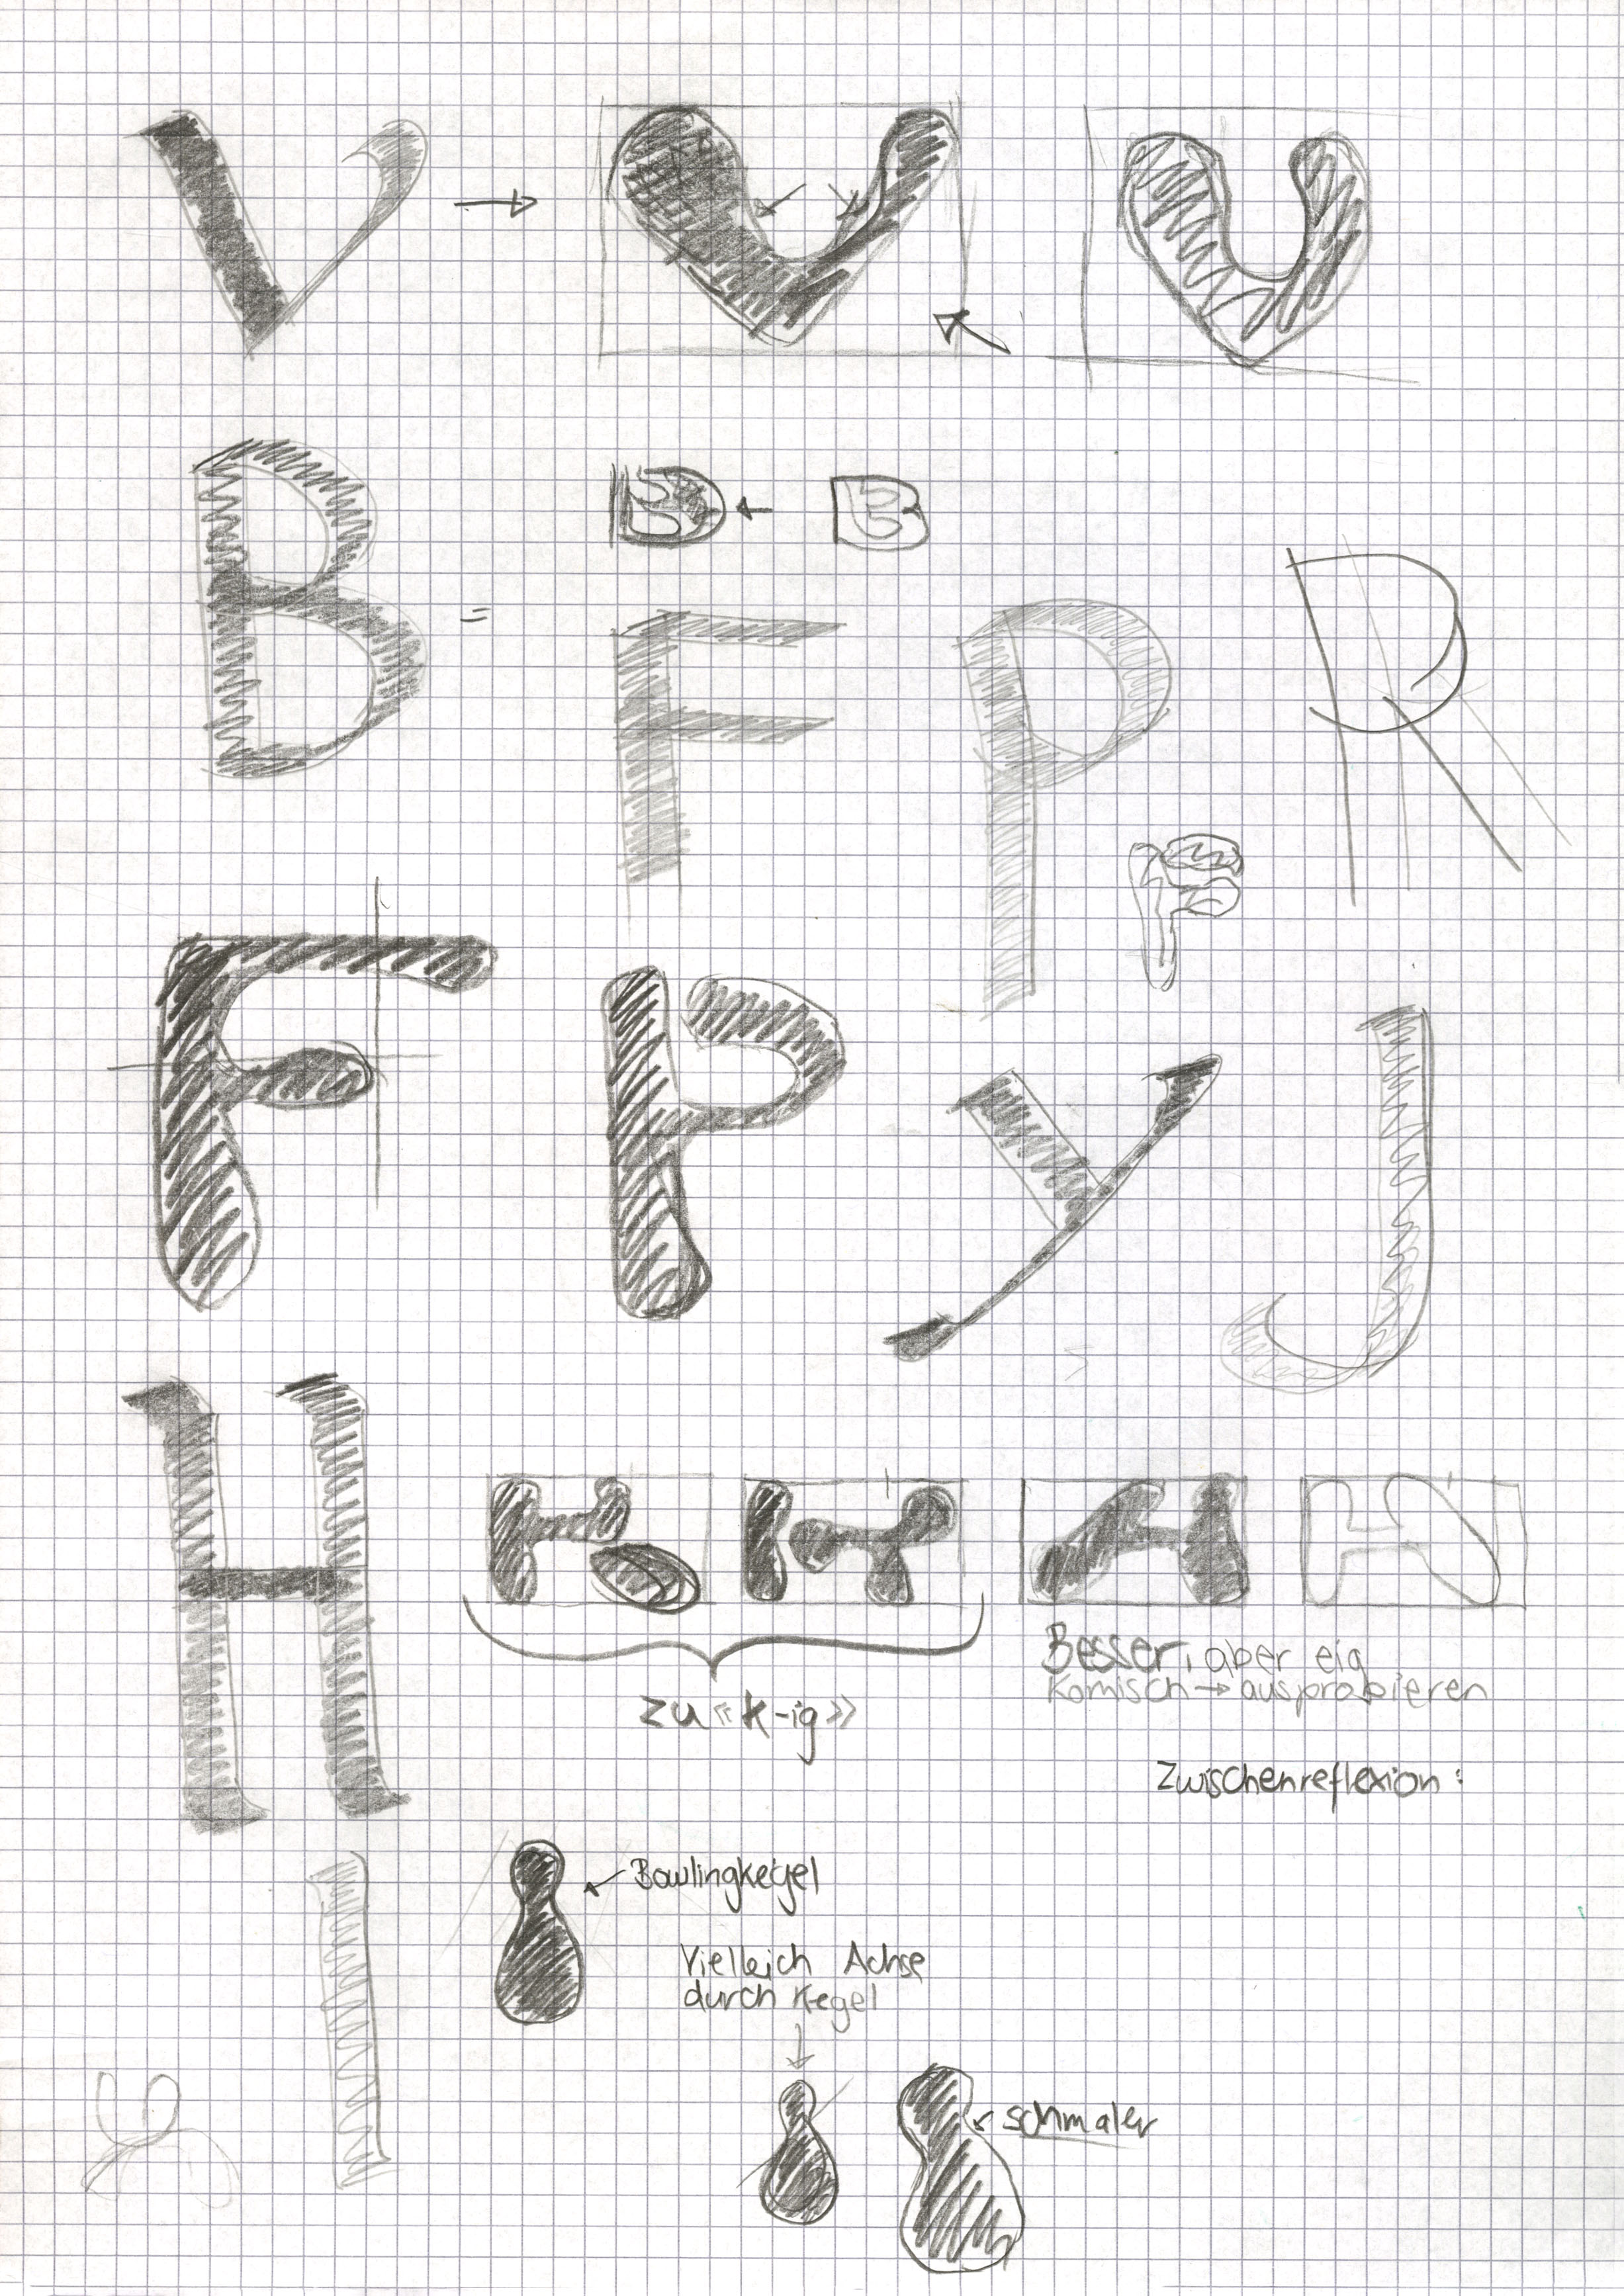 V → V V
B B ← B
= F P R
F
F P y J
H H H H H
Besser, aber eig
komisch → ausprobieren
zu «k-ig»
Zwischenreflexion:
Bowlingkegel
I
Vielleich Achse
durch Kegel
schmaler